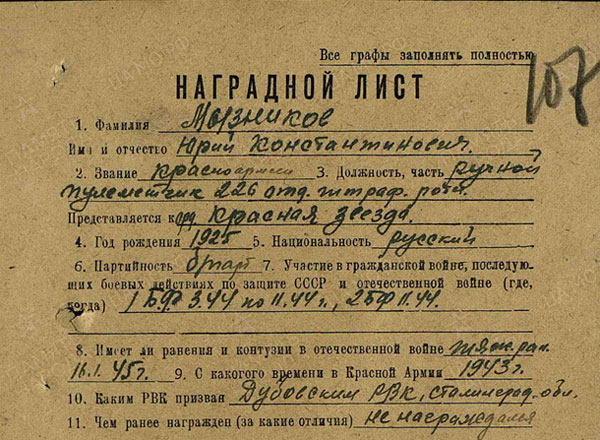 Все графы заполнять полностью
107
НАГРАДНОЙ ЛИСТ
1. Фамилия Мызников
Имя и отчество Юрий Константинович.
2. Звание красноармеец 3. Должность, часть ручной
пулеметчик 226 отд. штраф. рота.
Представляется к орд Красная звезда.
4. Год рождения 1925 5. Национальность русский
6. Партийность б/парт 7. Участие в гражданской войне, последую-
щих боевых действиях по защите СССР и отечественной войне (где,
когда) 1 БФ 3.44 по 11.44 г., 2БФ 11.44.
8. Имеет ли ранения и контузии в отечественной войне тяж. ран.
16.1.45г. 9. С какого времени в Красной Армии 1943г.
10. Каким РВК призван Дубовским РВК, сталинград. обл.
11. Чем ранее награжден (за какие отличия) не награждался